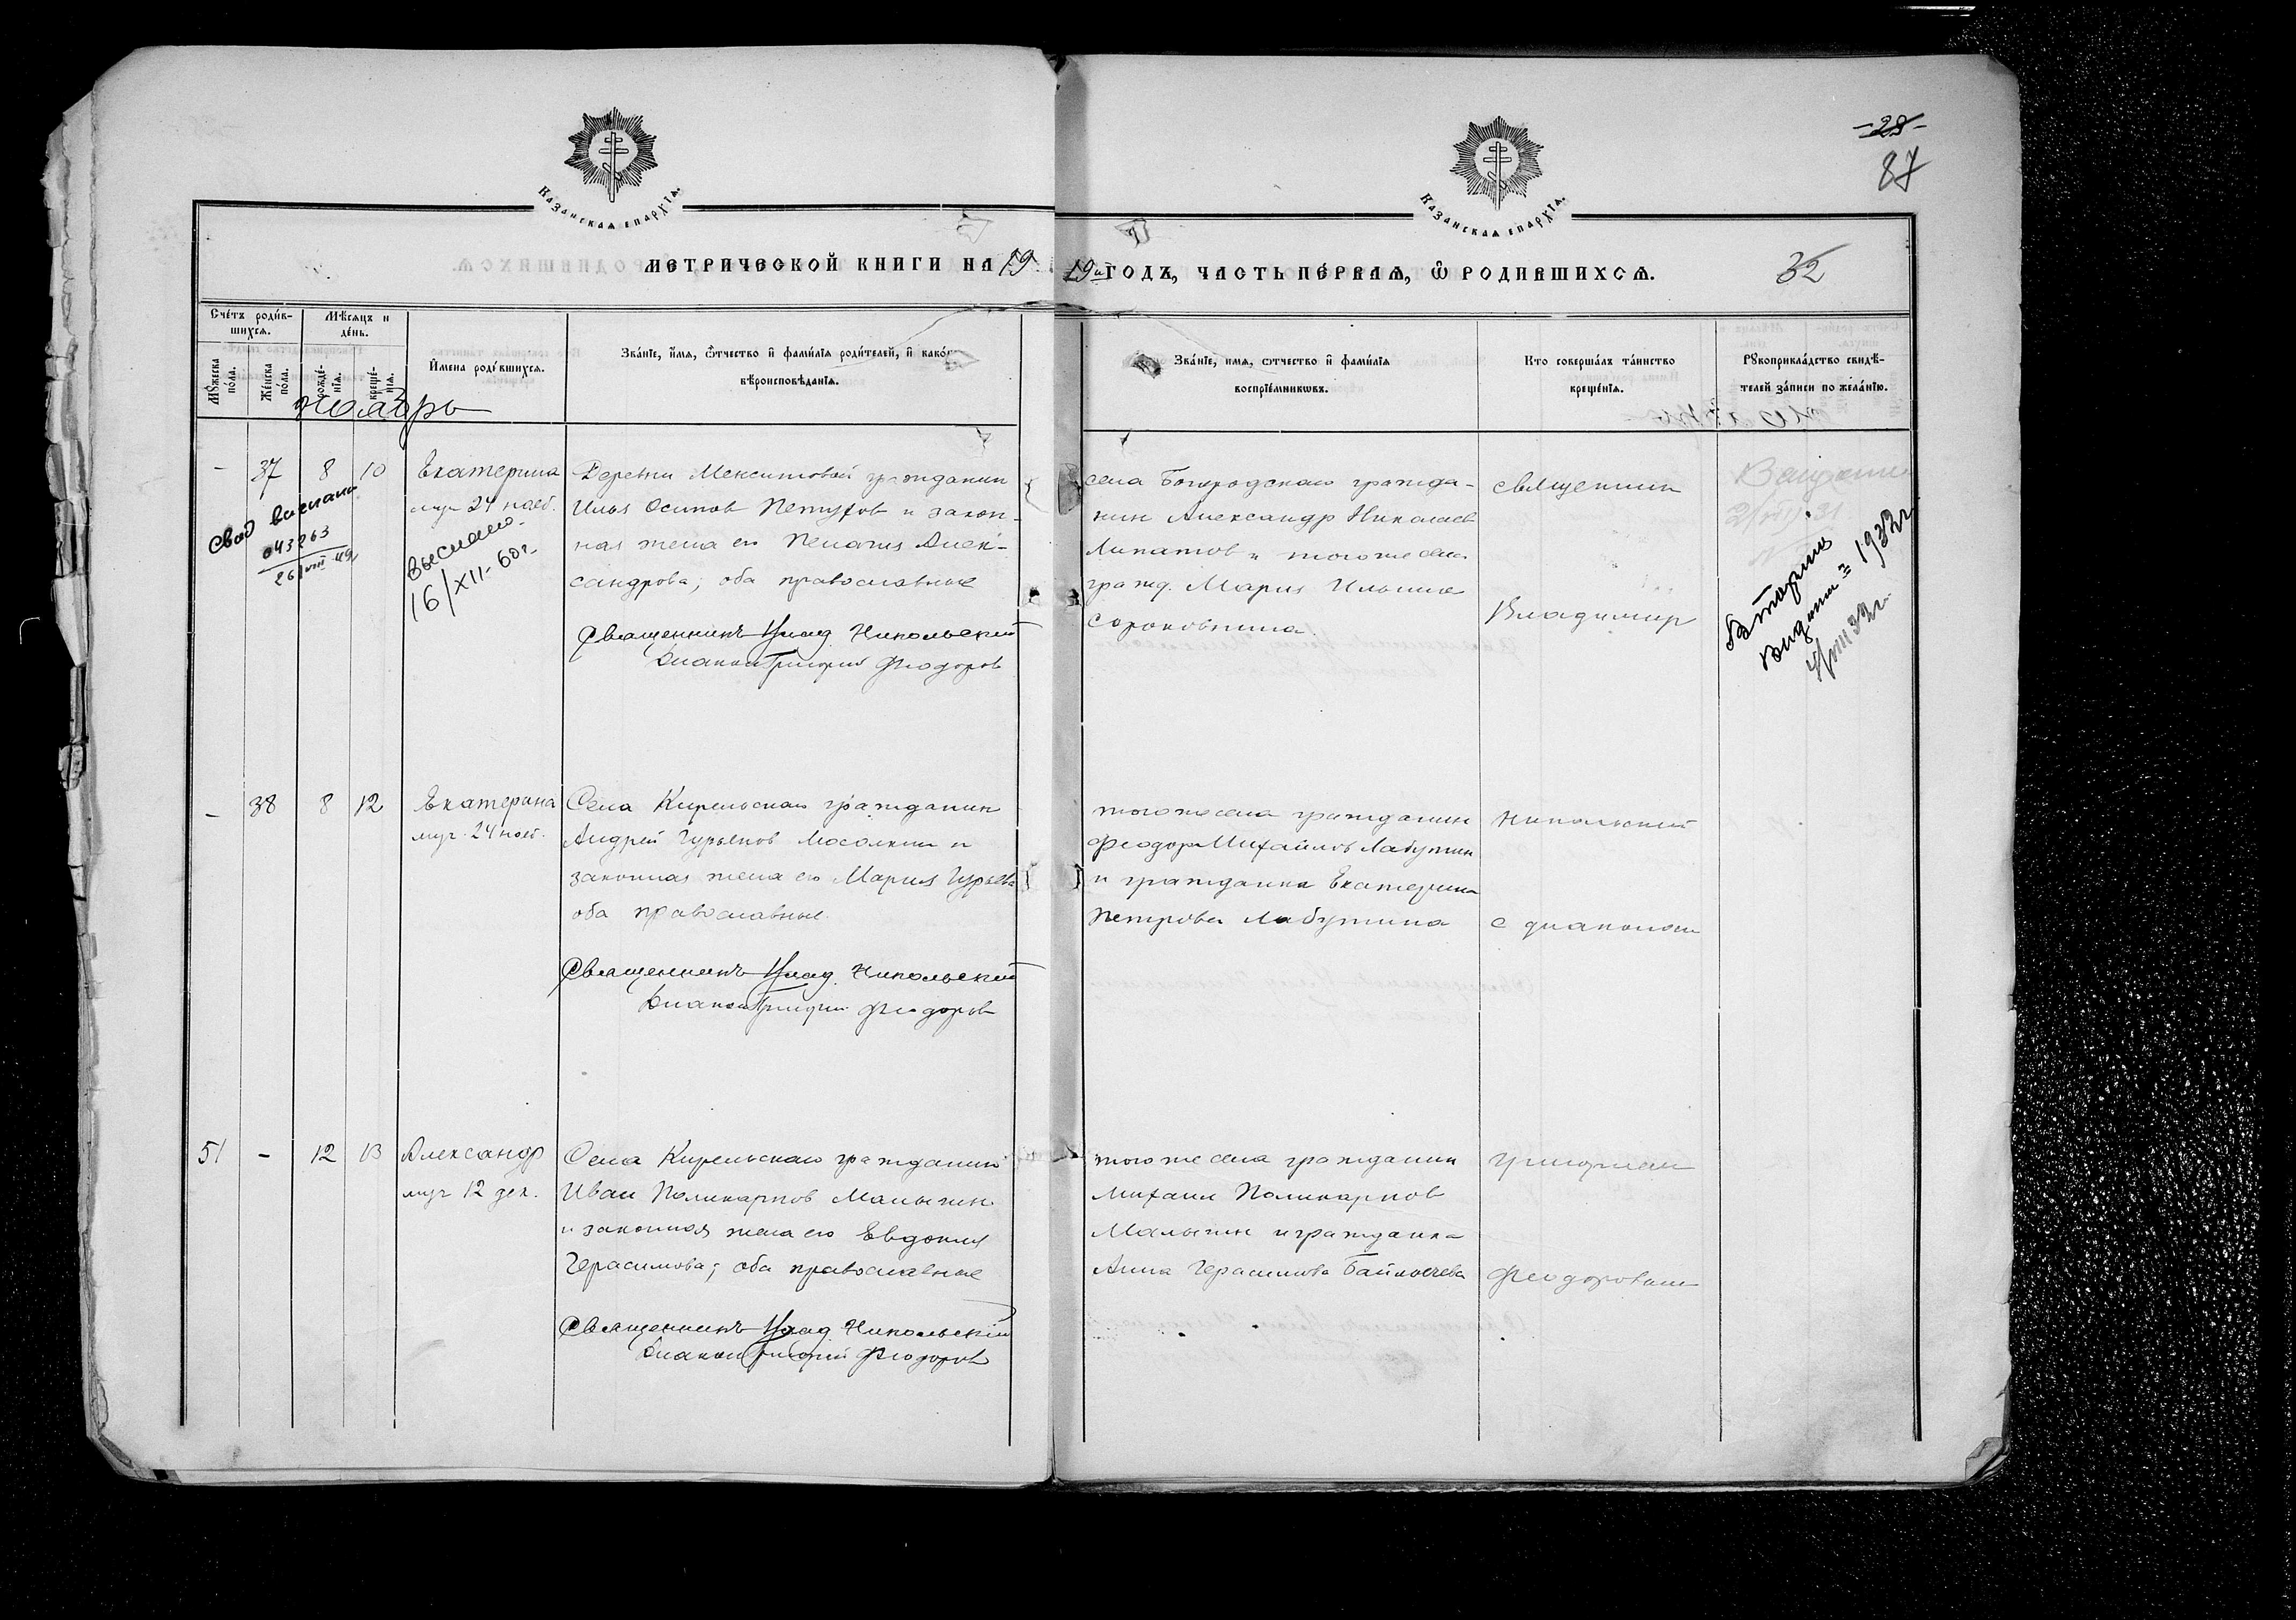 -28-
87
Казанскаѧ епархїѧ.
Казанскаѧ епархїѧ.
МЕТРИЧЕСКОЙ КНИГИ НА 19
19й ГОДЪ, ЧАСТЬ ПЕРВАѦ, Ѡ РОДИВШИХСѦ.
32
Счетъ родив-
шихсѧ.
Мѣсѧцъ и
день.
Мꙋжеска
пола.
Женска
пола.
рожде-
нїѧ.
креще-
нїѧ.
Имена родившихсѧ.
Званїе, имѧ, ѿчество и фамилїѧ родителей, и како
вѣроисповѣданїѧ.
Званїе, имѧ, ѿчество и фамилїѧ
воспрїемникѡвъ.
Кто совершалъ таинство
крещенїѧ.
Рꙋкоприкладство свидѣ-
телей записи по желанїю.
ноябрь
- 37 8 10
Екатерина
муч 24 нояб.
свид выслано
043263
26/VIII-49
Выслано
16/XII-60г.
Деревни Менситовой гражданин
Илья Осипов Петухов и закон-
ная жена его Пелагия Алек-
сандрова; оба православные
Священникъ Влад. Никольский
Диакон Григорий Феодоров
села Богородскаго гражда-
нин Александр Николаев
Липатов и того же села
гражд. Мария Ильина
Сороковнина.
священник
Владимир
Вторично
выдана 1932г
4/VIII 32г.
- 38 8 12
Екатерина
муч. 24 нояб.
Села Кирельскаго гражданин
Андрей Гурьянов Мосолкин и
законная жена его Мария Гурьева
оба православные.
Священникъ Влад. Никольский
Диакон Григорий Феодоров
того же села гражданин
Феодор Михайлов Лабутин
и гражданка Екатерина
Петрова Лабутина
Никольский
с диаконом
51 - 12 13
Александр
муч 12 дек.
Села Кирельскаго гражданин
Иван Поликарпов Малыгин
и законная жена его Евдокия
Герасимова; оба православные
Священникъ Влад. Никольскій
Диакон Григорий Феодоров
того же села гражданин
Михаил Поликарпов
Малыгин и гражданка
Анна Герасимова
Григорием
Феодоровым